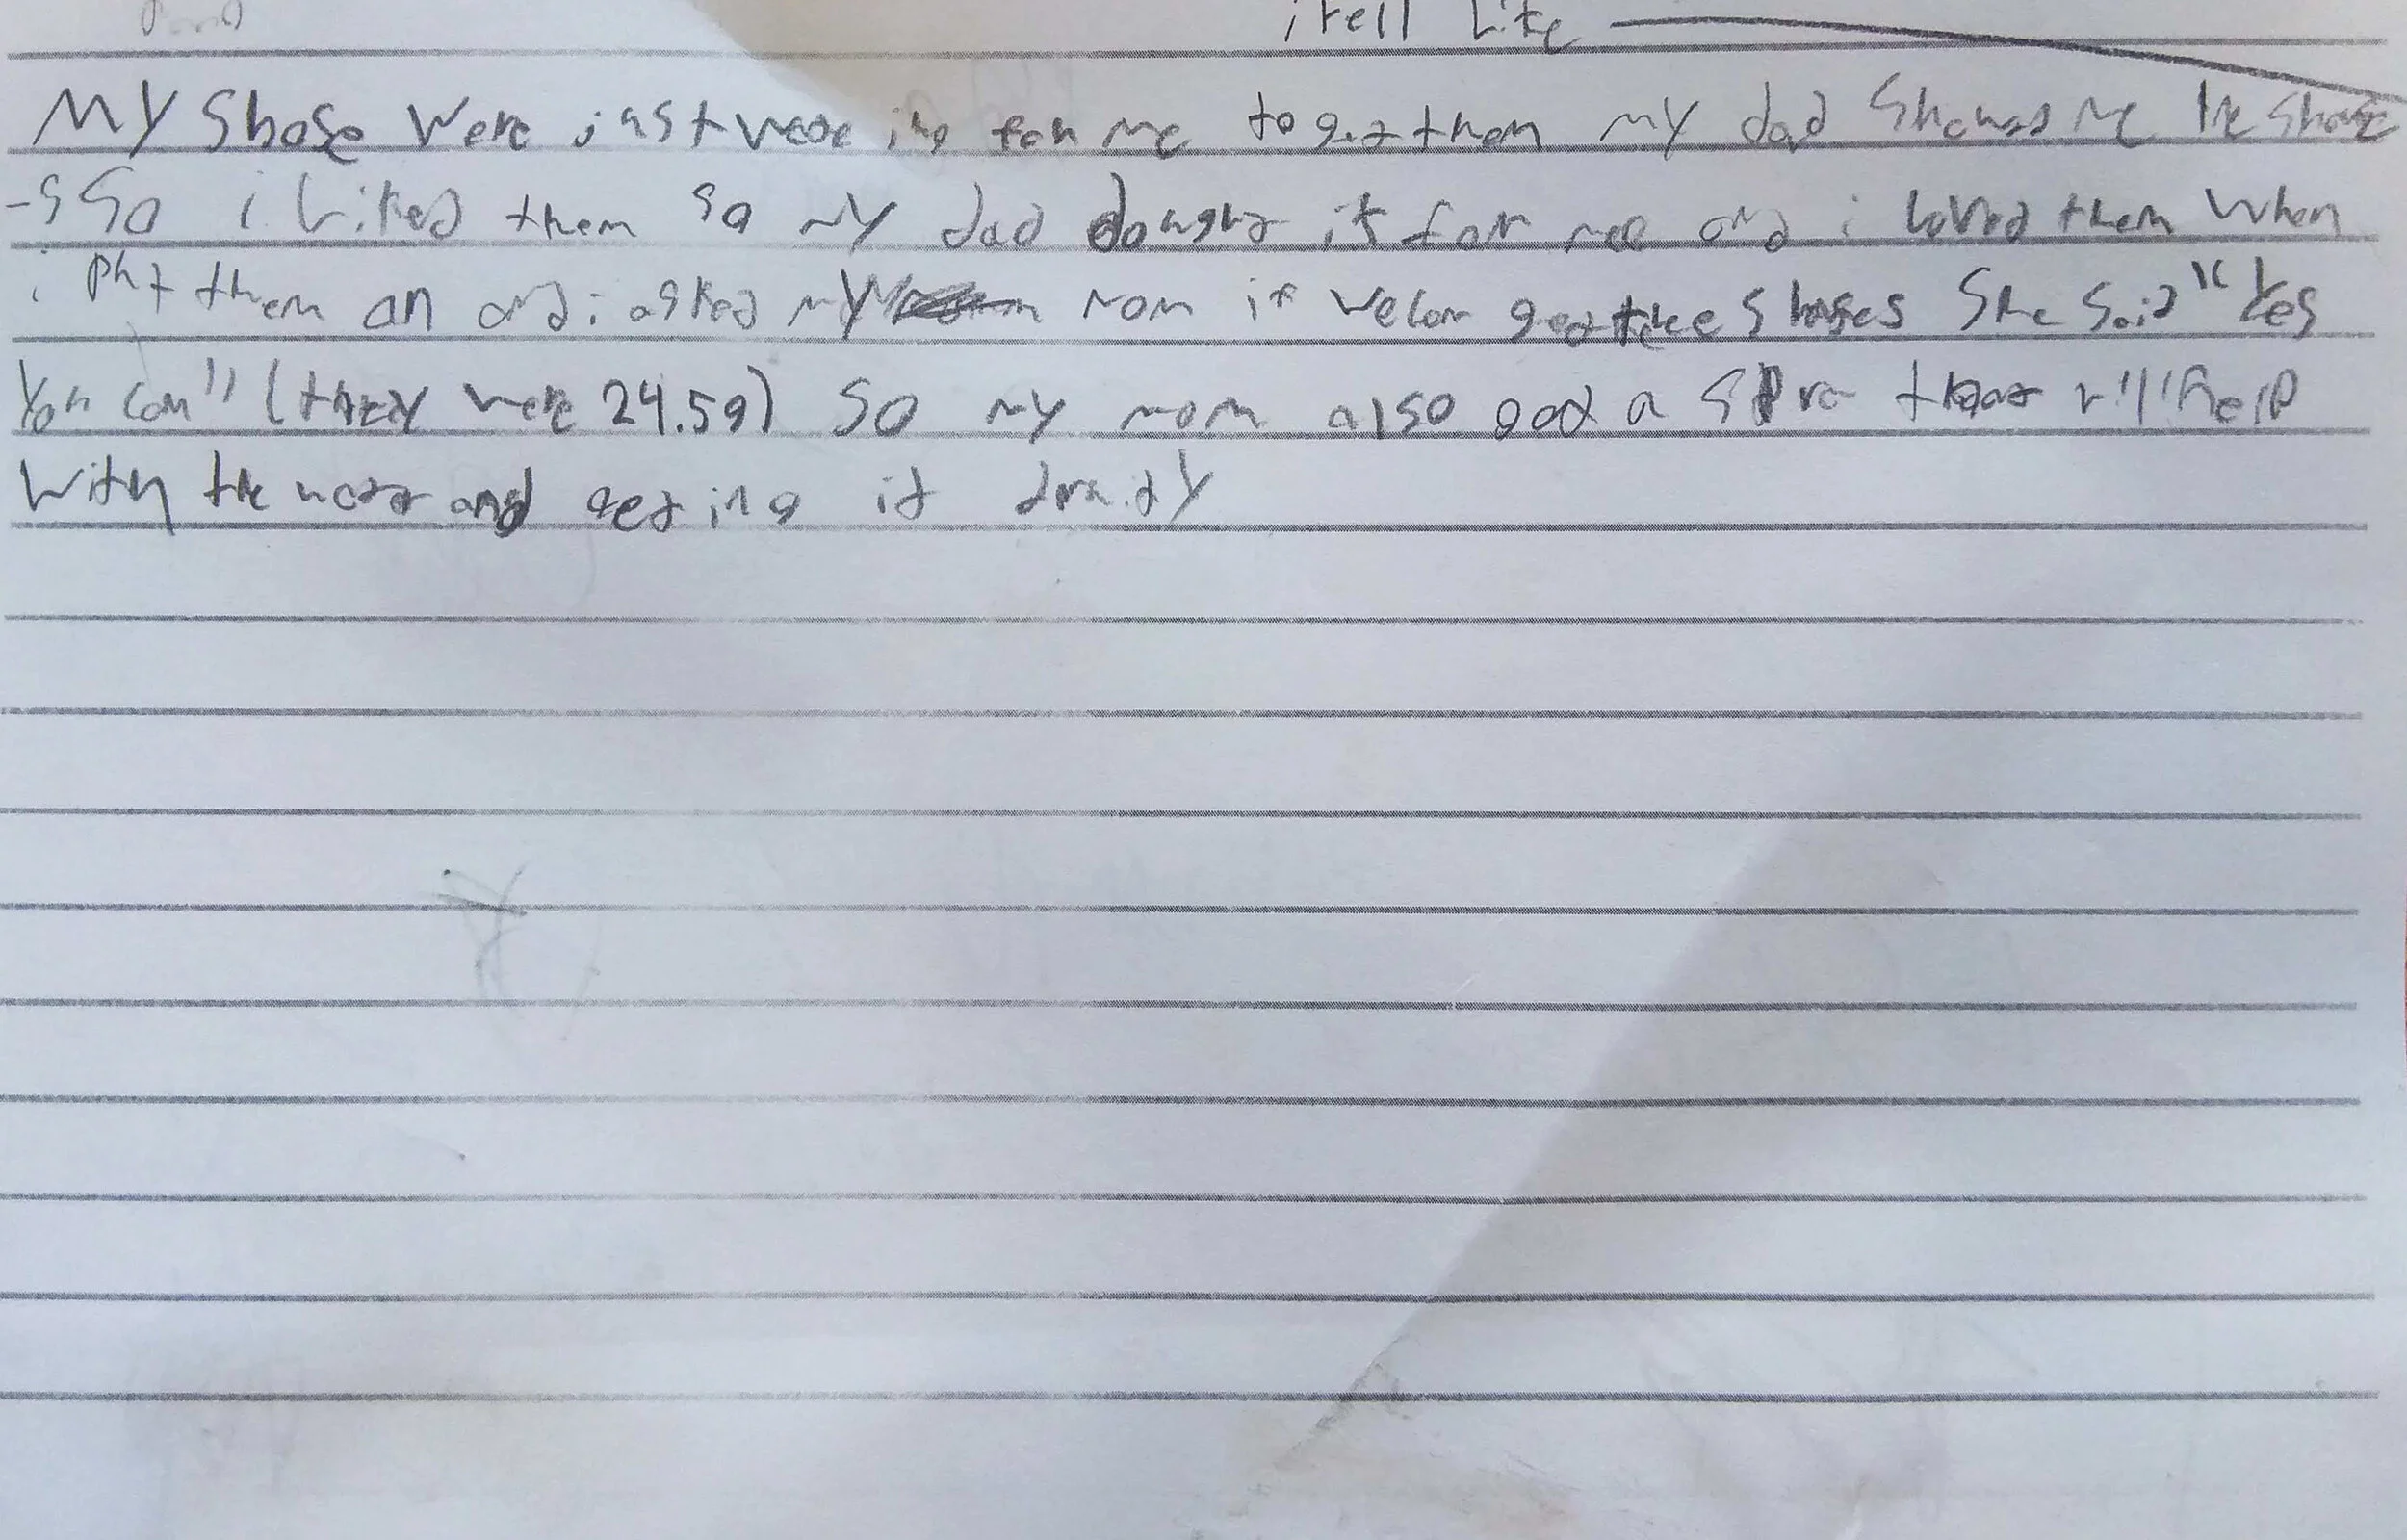 i fell Like
MY Shose Were just for me to get them MY dad Showed me the Shose
-s So i Liked them So my dad bought it for me and i loved them When
i Put them on and i asked my mom if we can get thee Shoses She Said "Yes
You can" (they were 24.59) So my mom also got a that will help
With the and geting it